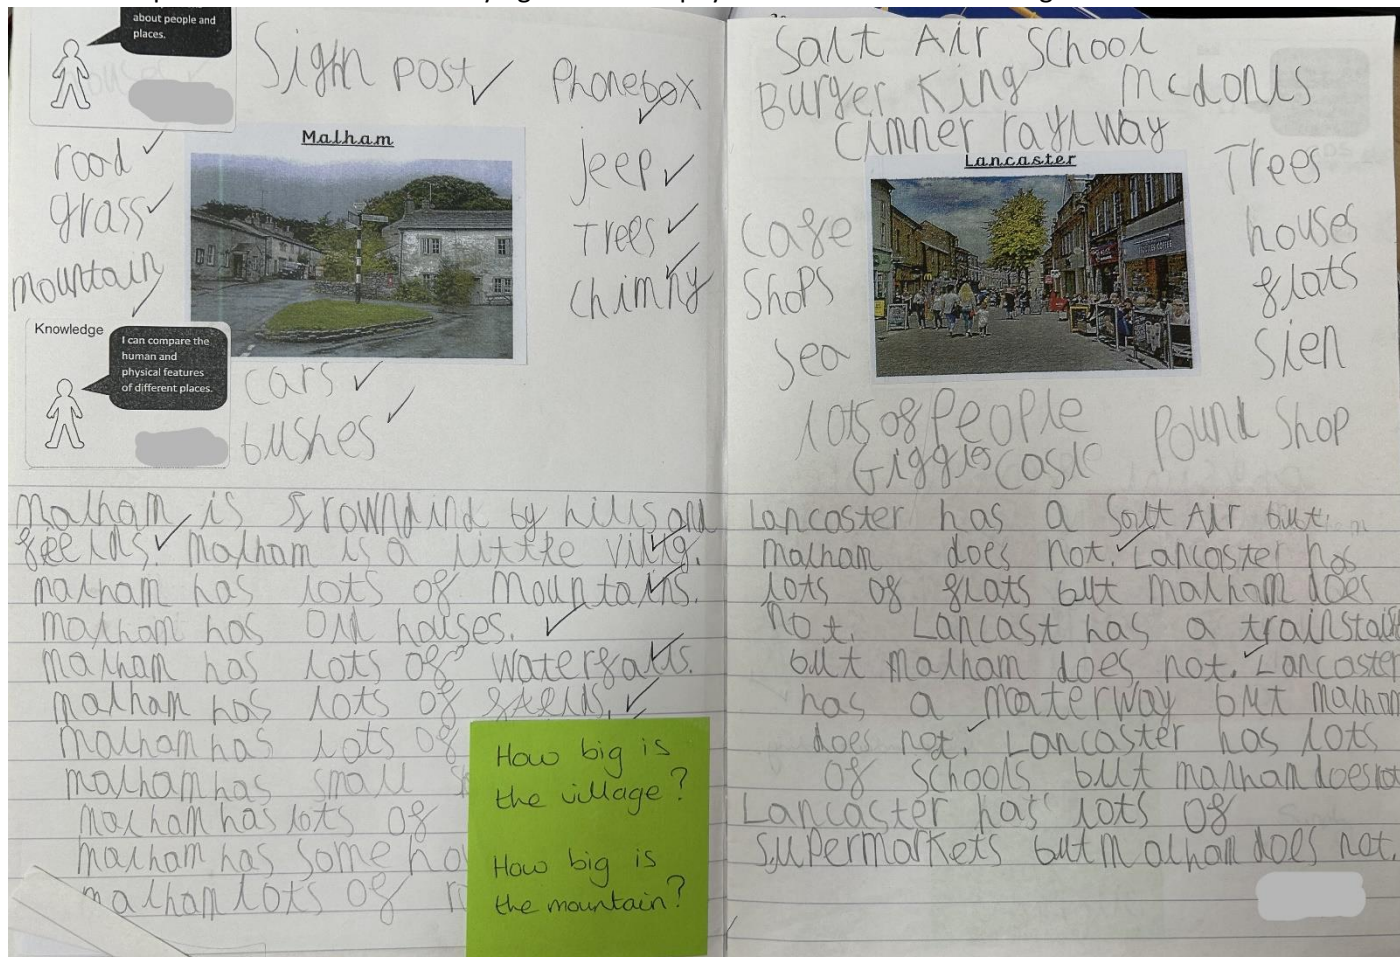 about people and
places.
Sighn post
Phonebox
road
grass
mountain
Malham
jeep
Trees
chimny
Knowledge
I can compare the
human and
physical features
of different places.
cars
bushes
Malham is srowndind by hills and
feelds. Malham is a little vilig.
malham has lots of Mountains.
malham has old houses.
malham has lots of waterfalls.
malham has lots of feelds.
malham has lots of
malham has small
malham has lots of
malham has some
malham lots of
How big is
the village?
How big is
the mountain?
Salt Air School
Burger King Mcdonls
raylway
Lancaster
Trees
cafe
houses
Shops
flats
Sea
Sien
lots of People
Pound Shop
Lancaster has a Salt Air but
malham does not. Lancaster has
lots of flats but malham does
not. Lancast has a
but malham does not. Lancaster
has a moterway but malham
does not. Lancaster has lots
of schools but malham does not
Lancaster has lots of
supermarkets but malham does not.